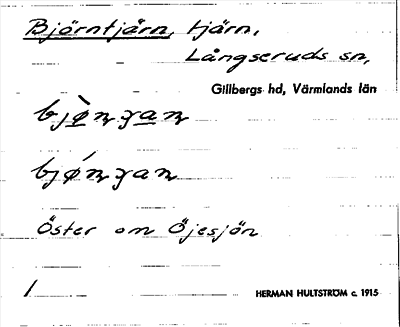 Björntjärn, tjärn,
Långseruds sn,
Gillbergs hd, Värmlands län
Öster om Öjesjön
1
HERMAN HULTSTRÖM c. 1915